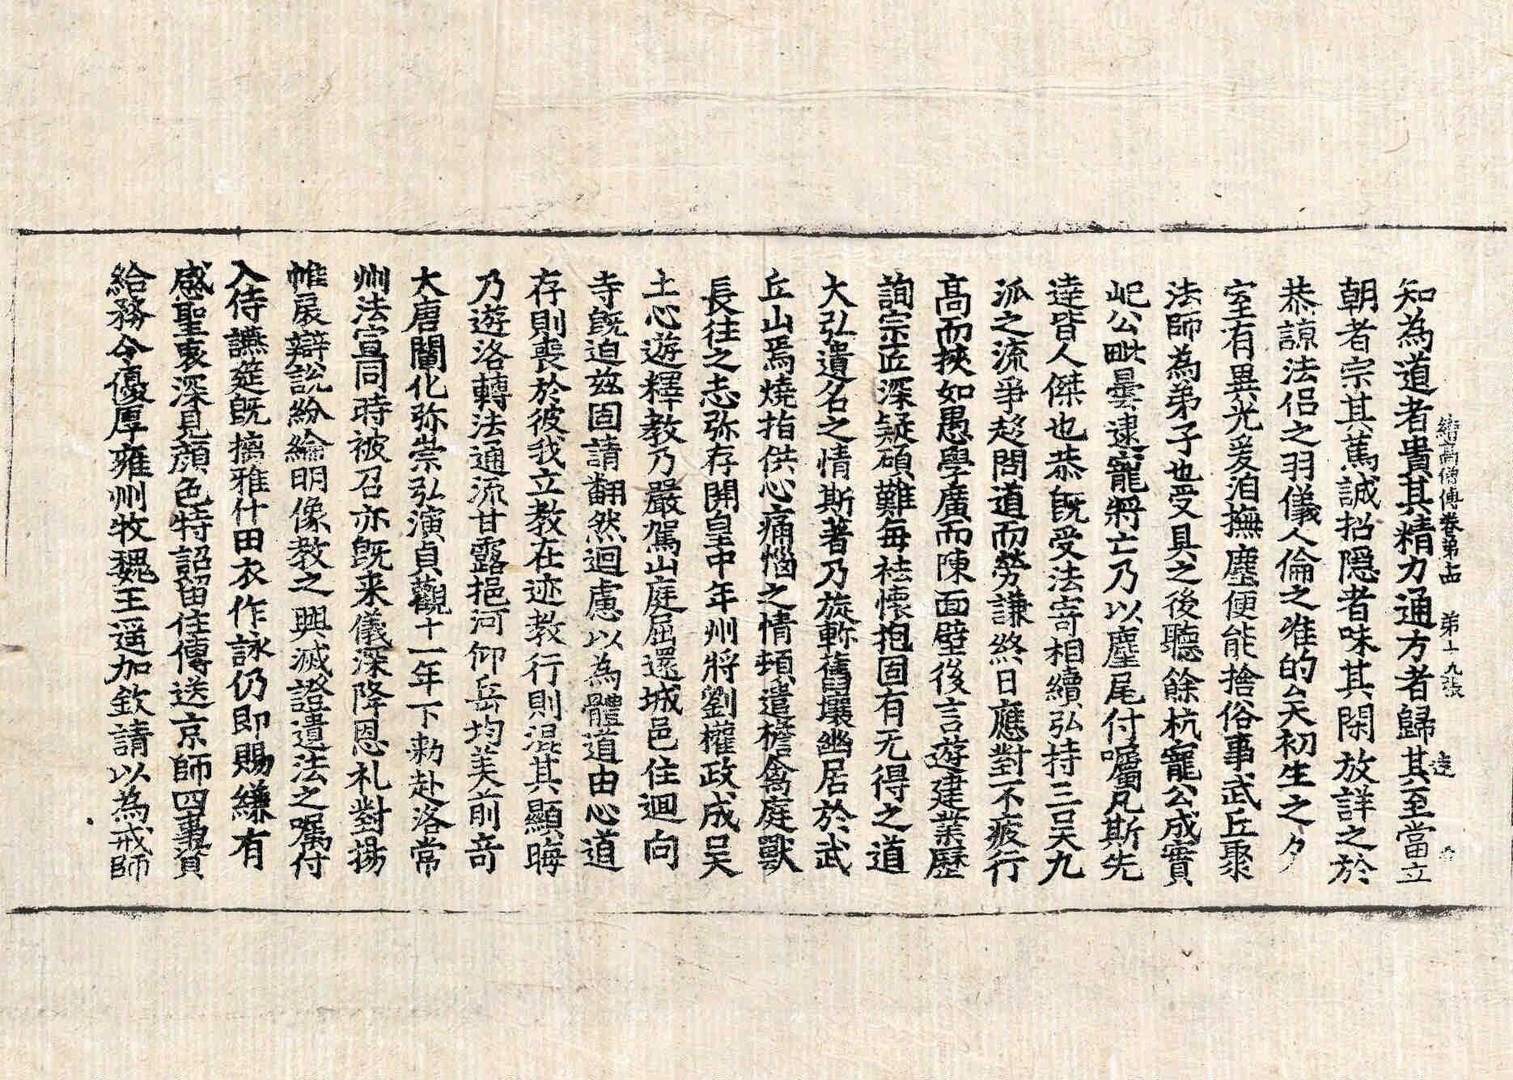 續高僧傳卷第十四 第十九張 達
知為道者貴其精力通方者歸其至當立
朝者宗其篤誠招隱者味其閑放詳之於
恭諒法侶之羽儀人倫之准的矣初生之夕
室有異光爰洎撫塵便能捨俗事武丘聚
法師為弟子也受具之後聽餘杭寵公成實
屺公毗曇逮寵將亡乃以麈尾付囑凡斯先
達皆人傑也恭既受法寄相續弘持三吳九
派之流爭趍問道而勞謙終日應對不疲行
高而挾如愚學廣而陳面壁後言遊建業歷
詢宗匠深疑碩難每祛懷抱固有无得之道
大弘遺名之情斯著乃旋斾舊壤幽居於武
丘山焉燒指供心痛惱之情頓遣檐禽庭獸
長往之志弥存開皇中年州將劉權政成吳
土心遊釋教乃嚴駕山庭屈還城邑住迴向
寺既迫茲固請翻然迴慮以為體道由心道
存則喪於彼我立教在迹教行則混其顯晦
乃遊洛轉法通流甘露挹河仰岳均美前奇
大唐闡化弥崇弘演貞觀十一年下勑赴洛常
州法宣同時被召亦既来儀深降恩礼對揚
帷扆辯訟紛綸明像教之興滅證遺法之囑付
入侍讌筵既摛雅什田衣作詠仍即賜縑有
感聖衷深見顔色特詔留住傳送京師四事資
給務令優厚雍州牧魏王遥加欽請以為戒師